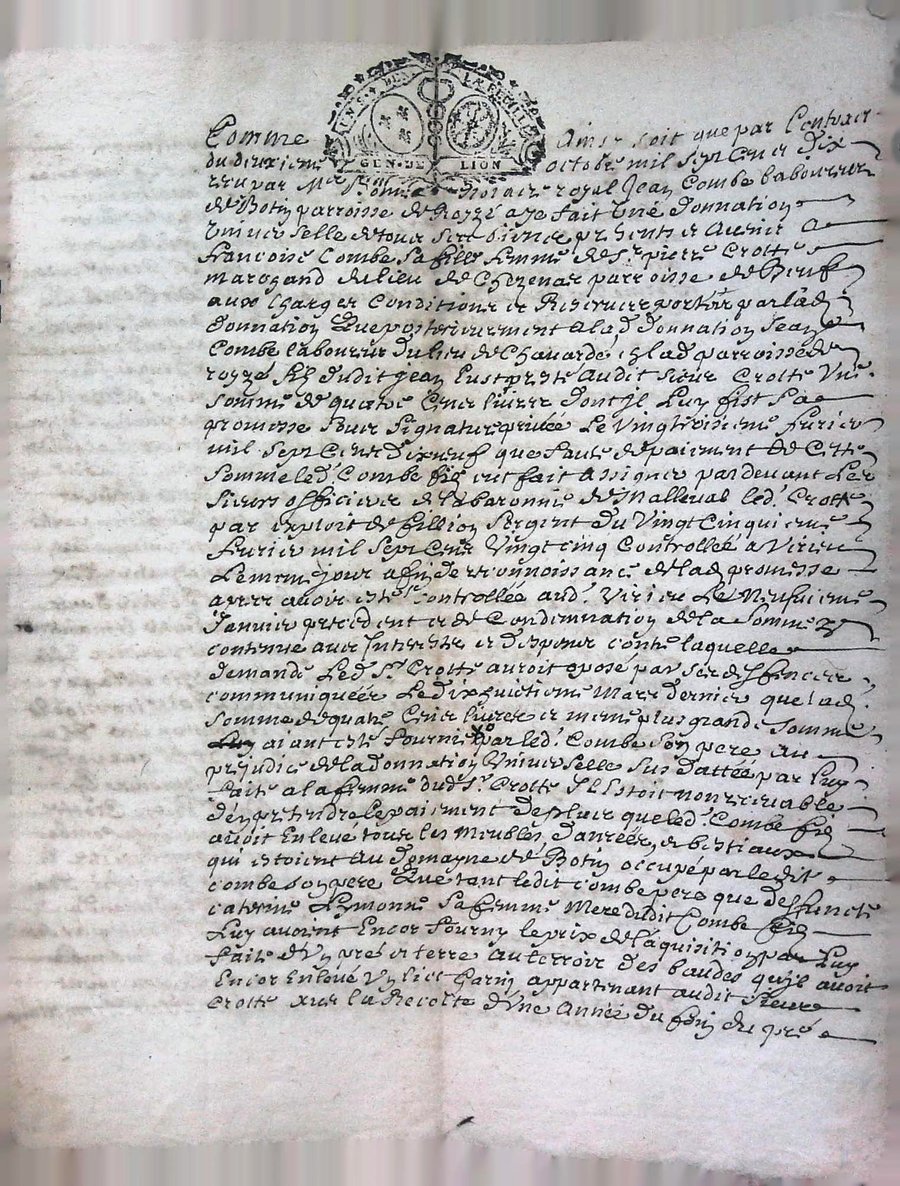 GEN · DE LION
Comme Ainsy soit que par Contract
du deuxieme octobre mil sept Cent dix
receu par Me notaire royal Jean Combe laboureur
de Botin parroisse de Royzé aye fait Une donnation
Universelle de tous ses biens presents et avenir a
francoise Combe sa fille femme de Sr pierre Crotte
marchand du lieu de Chezenas parroisse de Beuf
aux Charges Conditions et Reserves portés par lad.
donnation Que posterieurement a lad. donnation Jean
Combe laboureur du lieu de Chavarde, lad parroisse de
royzé fils dudit jean Eust presté audit sieur Crotte Une
somme de quatre Cents livres dont Il Luy fist Sa
promesse sous signature privée Le Vingt fevrier
mil sept Cent dix neuf que faute de paiement de Cette
Somme led. Combe fils eut fait assigner pardevant Les
sieurs officiers de la baronnie de Malleval led. Crotte
par exploit de fillion Sergent du Vingt Cinquieme
fevrier mil sept Cents Vingt Cinq Controllée a Virieu
Le meme jour afin de reconnoissance de lad. promesse
apres avoir esté Controllée aud. Virieu Le Neufvieme
Janvier precedent et de Condemnation de la Somme y
contenue avec Interests et depens contre laquelle
demande Led. Sr. Crotte auroit oposé par ses deffences
communiquées Le dixhuictieme Mars dernier que lad.
Somme de quatre Cents livres et meme plus grande Somme
aiant esté fournie par led. Combe son pere au
prejudice de la donnation Universelle sus dattée par luy
faite a la femme dud. Sr. Crotte Il Estoit non recevable
d'en pretendre le paiement de plus que led. Combe fils
avoit Enlevé tous les Meubles danrées, et bestiaux
qui estoient au domayne de Botin occupé par ledit
combe son pere Que tant ledit combe pere que deffuncte
caterine Lymonne Sa femme Mere dudit Combe fils
Luy avoient Encor fourny le prix de l'aquisition par Luy
faite d'Un pré et terre au terroir des baudes qu'il avoit
Encor Enlevé Un lict Garny appartenant audit Sieur
Crotte sur la Recolte d'Une Année du foin du pré